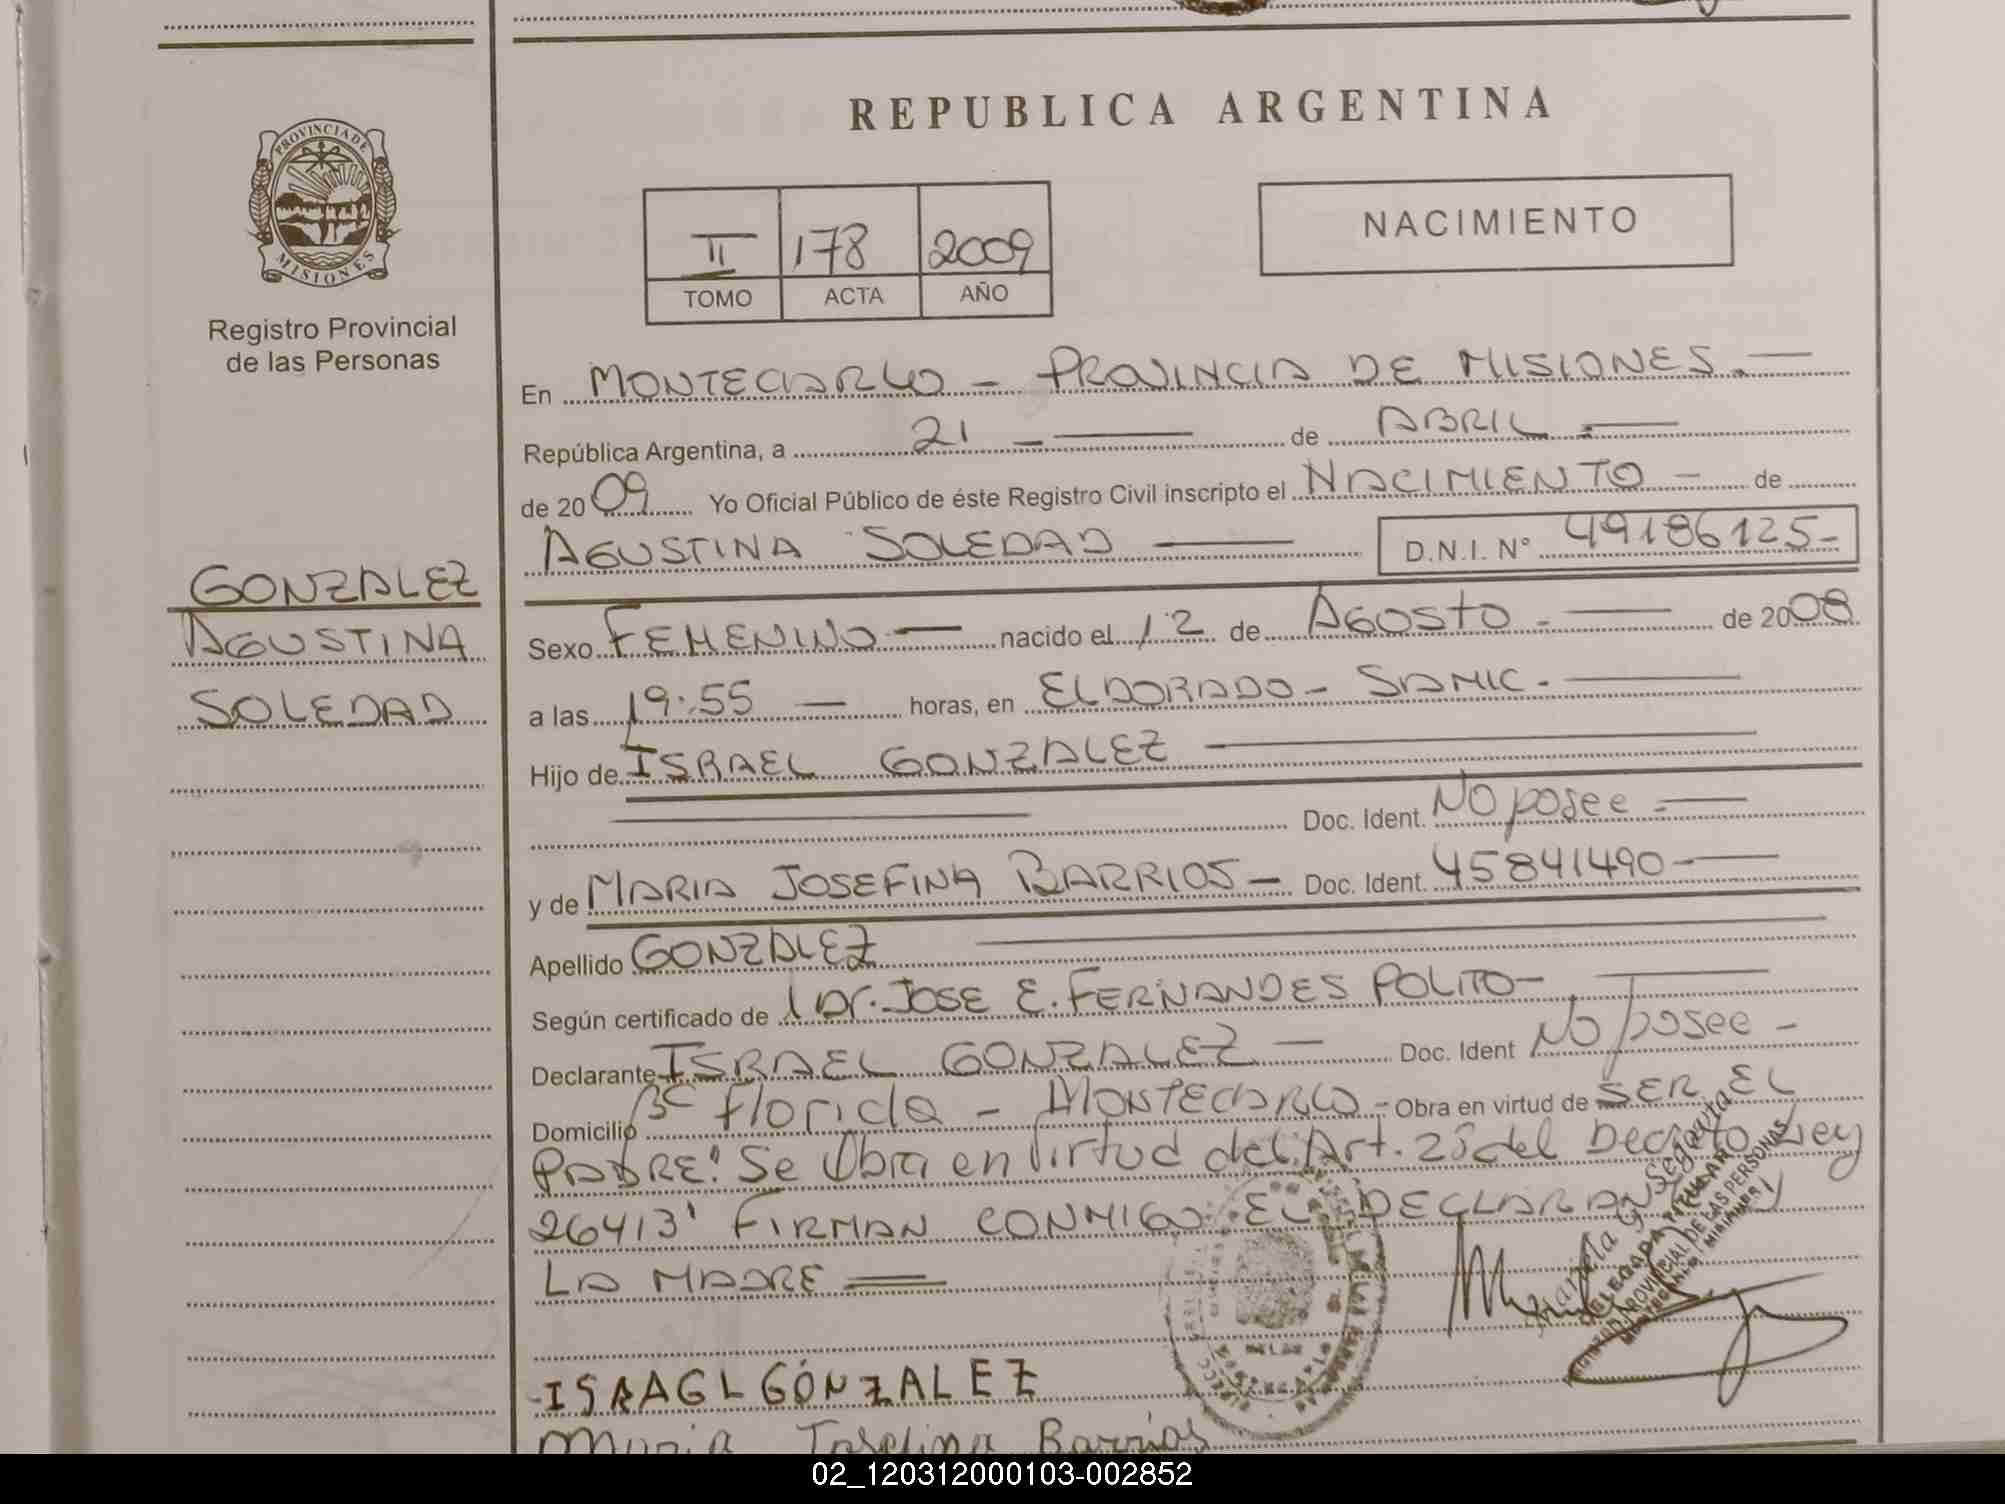 REPUBLICA ARGENTINA
PROVINCIA DE
MISIONES
Registro Provincial
de las Personas
II 178 2009
TOMO ACTA AÑO
NACIMIENTO
En MONTECARLO - PROVINCIA DE MISIONES.-
República Argentina, a 21 - de ABRIL -
de 2009 Yo Oficial Público de éste Registro Civil inscripto el NACIMIENTO - de
AGUSTINA SOLEDAD — D.N.I. N° 49186125-
GONZALEZ
AGUSTINA
SOLEDAD
Sexo FEMENINO — nacido el 12 de AGOSTO - de 2008
a las 19:55 — horas, en ELDORADO - SAMIC. -
Hijo de ISRAEL GONZALEZ —
Doc. Ident. No posee -
y de MARIA JOSEFINA BARRIOS - Doc. Ident. 45841490 -
Apellido GONZALEZ
Según certificado de Dr. JOSE E. FERNANDES POLITO -
Declarante ISRAEL GONZALEZ — Doc. Ident No posee -
Domicilio Bº Florida - MONTECARLO - Obra en virtud de SER EL
PADRE! Se Obra en Virtud del Art. 25 del Decreto Ley
26413' FIRMAN CONMIGO EL DECLARAN
LA MADRE
DELEGADA TITULAR
PROVINCIAL DE LAS PERSONAS
ISRAGL GONZALEZ
Maria Josefina Barrios
02_120312000103-002852